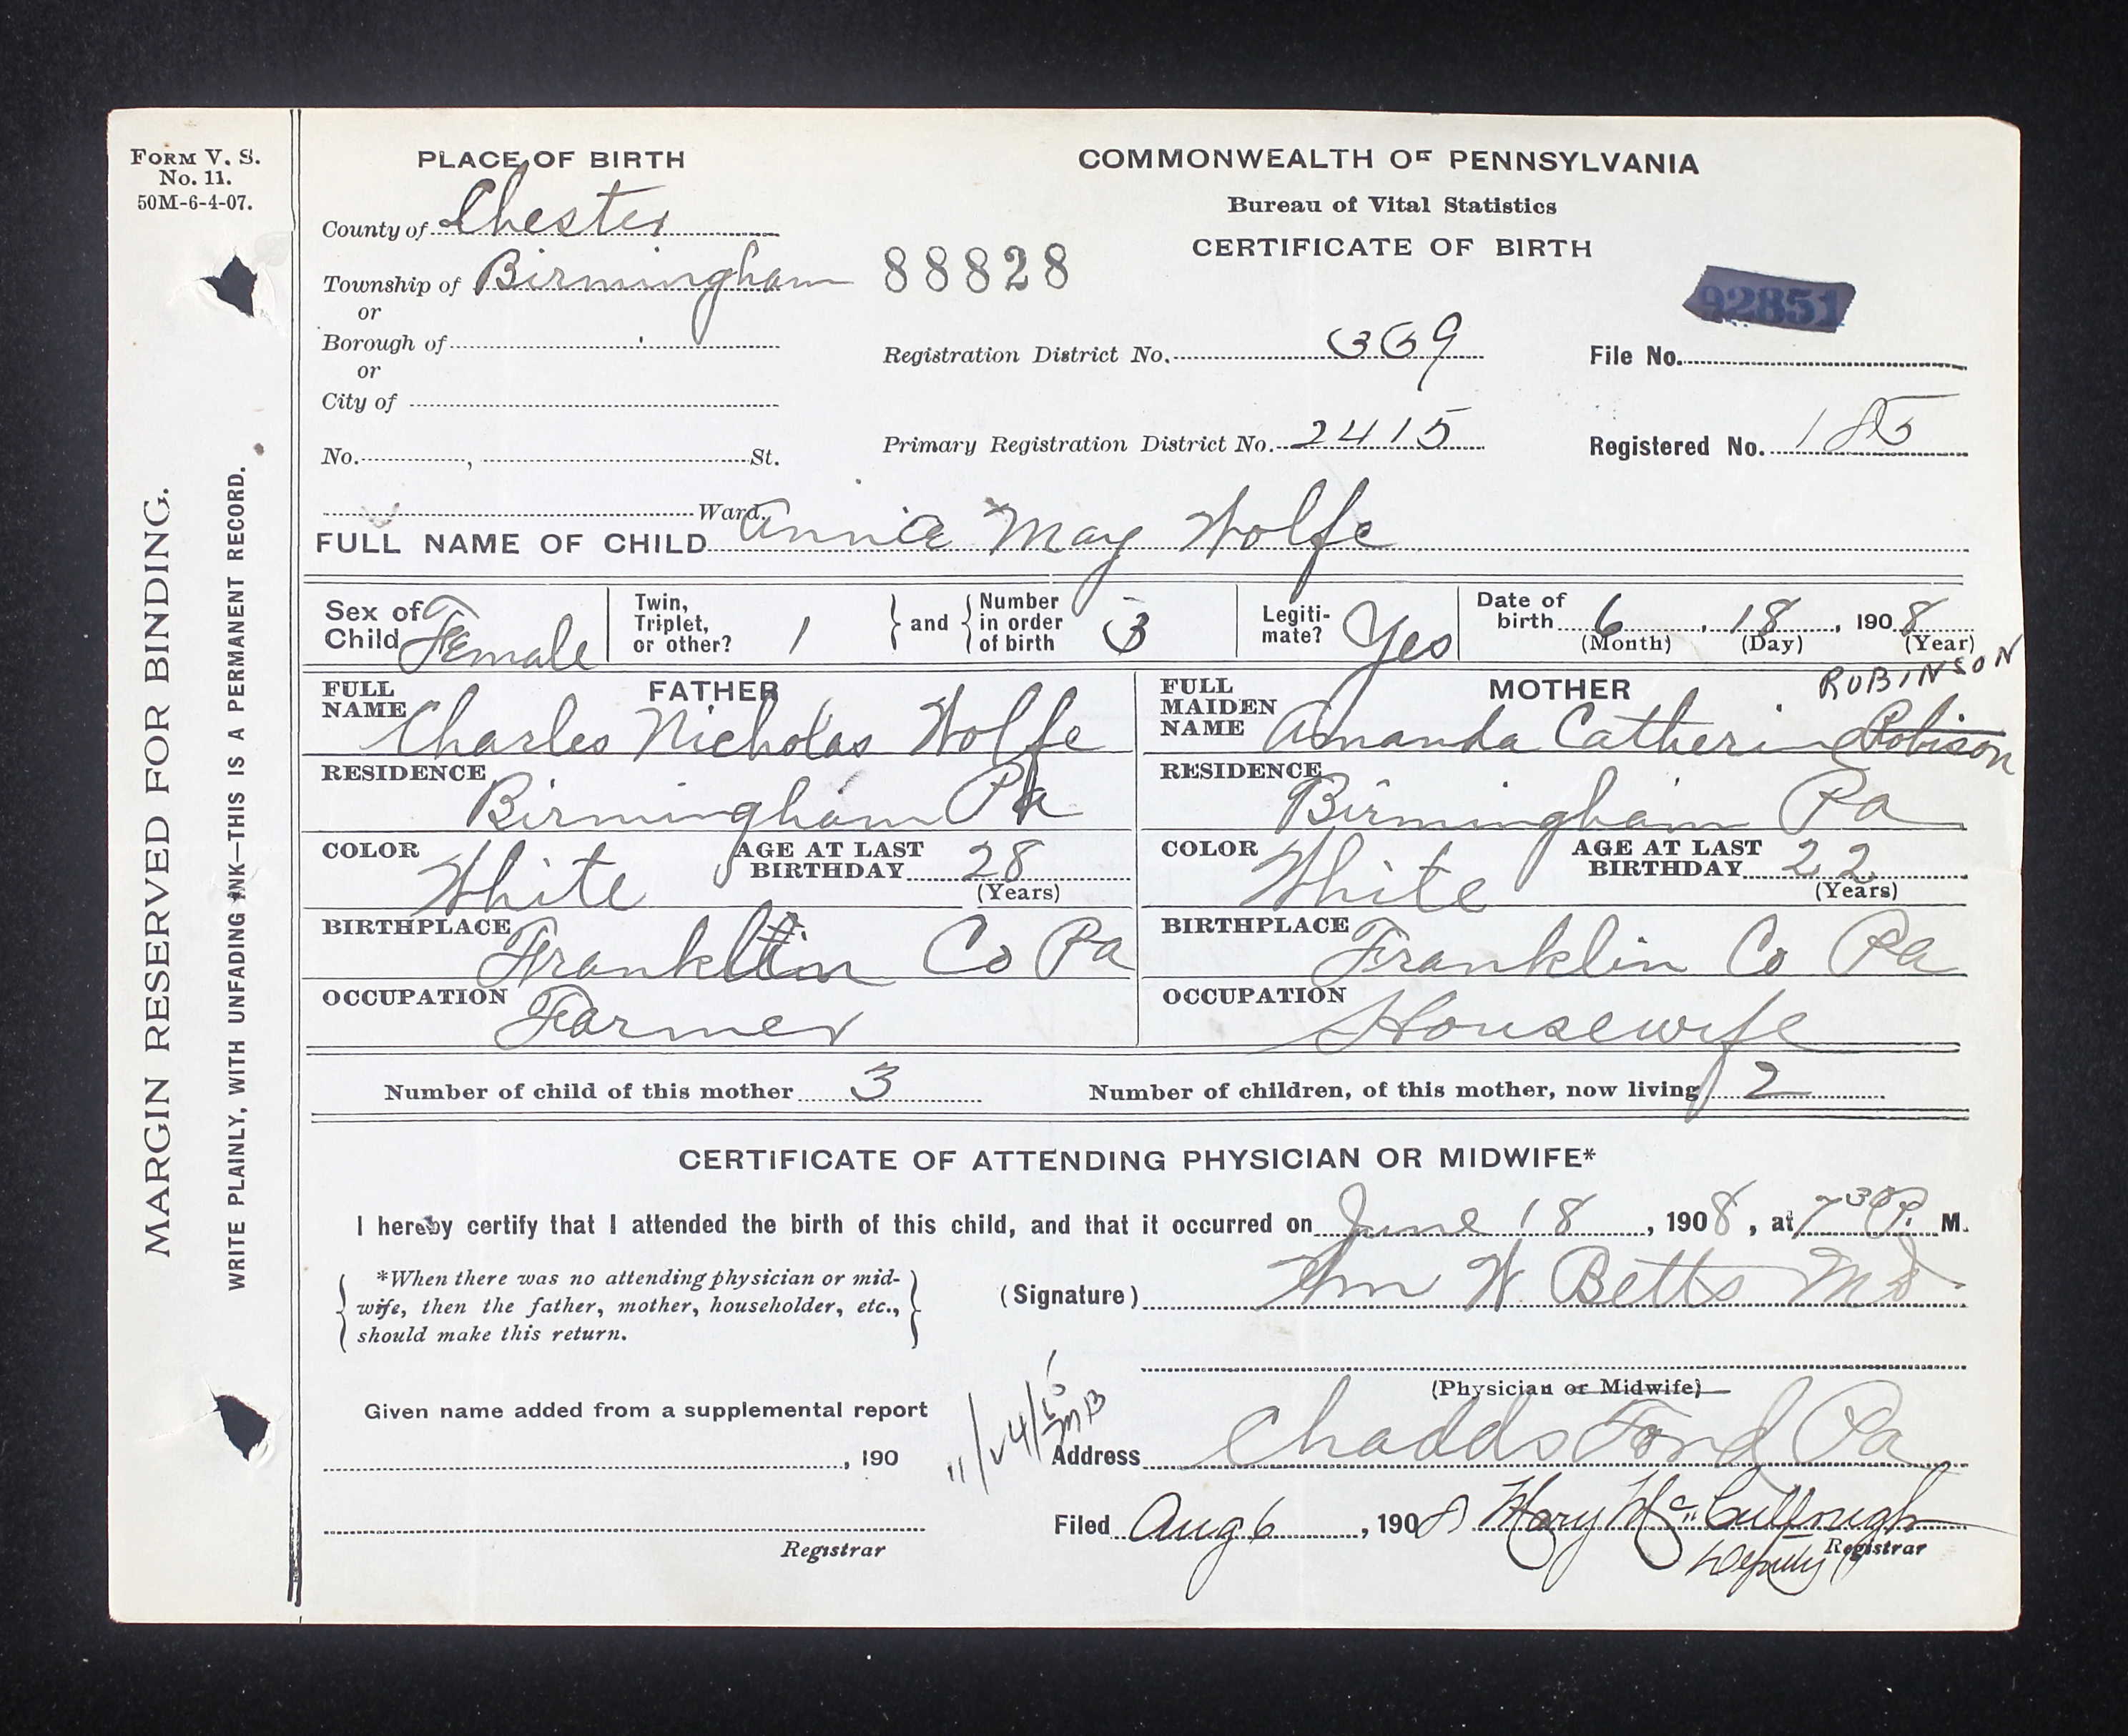 FORM V. S.
No. 11.
50M-6-4-07.
MARGIN RESERVED FOR BINDING.
WRITE PLAINLY, WITH UNFADING INK—THIS IS A PERMANENT RECORD.
PLACE OF BIRTH
County of Chester
Township of Birmingham
or
Borough of
or
City of
No. , St.
Ward.
COMMONWEALTH OF PENNSYLVANIA
Bureau of Vital Statistics
CERTIFICATE OF BIRTH
88828
92851
Registration District No. 369
File No.
Primary Registration District No. 2415
Registered No. 185
FULL NAME OF CHILD Annie May Wolfe
Sex of Child Female
Twin, Triplet, or other? 1
and Number in order of birth 3
Legiti-mate? Yes
Date of birth 6, 18, 1908
(Month) (Day) (Year)
FATHER
FULL NAME Charles Nicholas Wolfe
RESIDENCE Birmingham Pa
COLOR White AGE AT LAST BIRTHDAY 28
(Years)
BIRTHPLACE Franklin Co Pa
OCCUPATION Farmer
MOTHER
ROBINSON
FULL MAIDEN NAME Amanda Catherine Robison
RESIDENCE Birmingham Pa
COLOR White AGE AT LAST BIRTHDAY 22
(Years)
BIRTHPLACE Franklin Co Pa
OCCUPATION Housewife
Number of child of this mother 3 Number of children, of this mother, now living 2
CERTIFICATE OF ATTENDING PHYSICIAN OR MIDWIFE*
I hereby certify that I attended the birth of this child, and that it occurred on June 18, 1908, at 7 30 P. M.
*When there was no attending physician or mid-
wife, then the father, mother, householder, etc.,
should make this return.
(Signature) Wm W Betts MD
(Physician or Midwife)
Given name added from a supplemental report
, 190
Registrar
Address Chadds Ford Pa
Filed Aug 6, 1908 Mary McCullough
Deputy Registrar